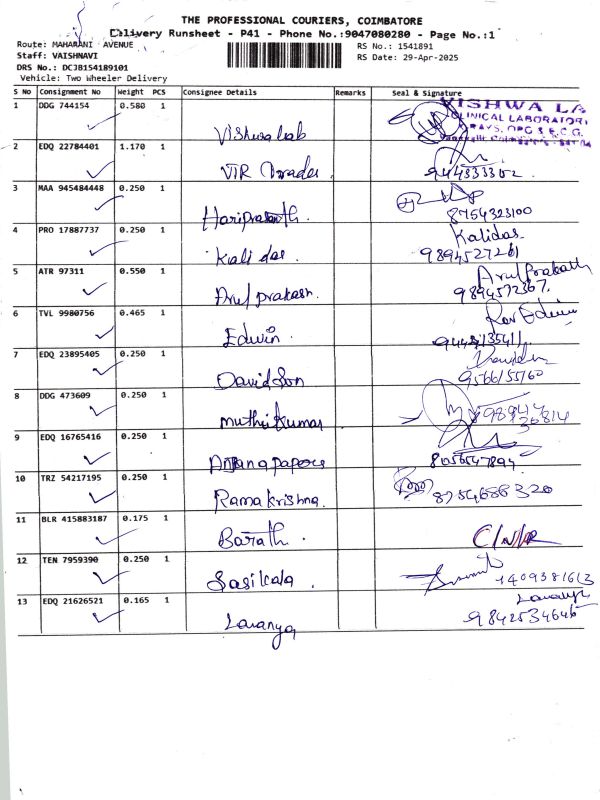 THE PROFESSIONAL COURIERS, COIMBATORE
Delivery Runsheet - P41 - Phone No.:9047080280 - Page No.:1
Route: MAHARANI AVENUE
RS No.: 1541891
Staff: VAISHNAVI
RS Date: 29-Apr-2025
DRS No.: DCJB154189101
Vehicle: Two Wheeler Delivery
S No Consignment No Weight PCS Consignee Details Remarks Seal & Signature
1 DDG 744154 0.580 1 Vishwa lab VISHWA LA
CLINICAL LABORATORY
2 EDQ 22784401 1.170 1 VIR
3 MAA 945484448 0.250 1 Hariprasanth. 8754323100
4 PRO 17887737 0.250 1 Kali das. Kalidas.
9894527261
5 ATR 97311 0.550 1 Arul prakash. Arul Prakash
9894572367.
6 TVL 9980756 0.465 1 Edwin. Edwin
7 EDQ 23895405 0.250 1 Davidson
9566155760
8 DDG 473609 0.250 1 Muthu Kumar
9 EDQ 16765416 0.250 1 Anjana papers 8056547894
10 TRZ 54217195 0.250 1 Rama krishna. 8754688320
11 BLR 415883187 0.175 1 Barath.
12 TEN 7959390 0.250 1 Sasikala.
13 EDQ 21626521 0.165 1 Lavanya Lavanya
9842534646